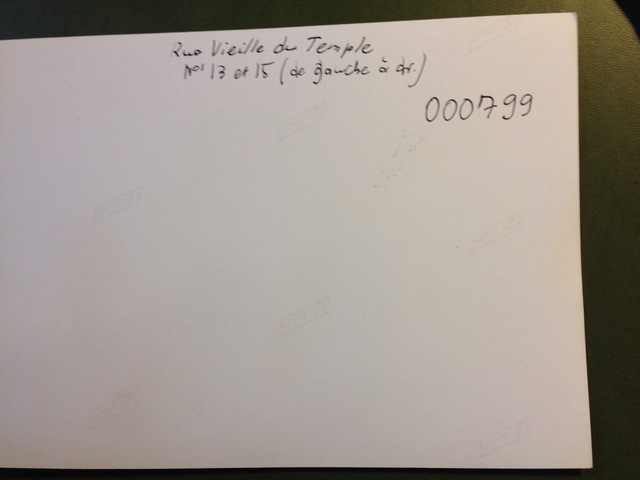 Rue Vieille du Temple
Nos 13 et 15 (de gauche à dr.)
000799